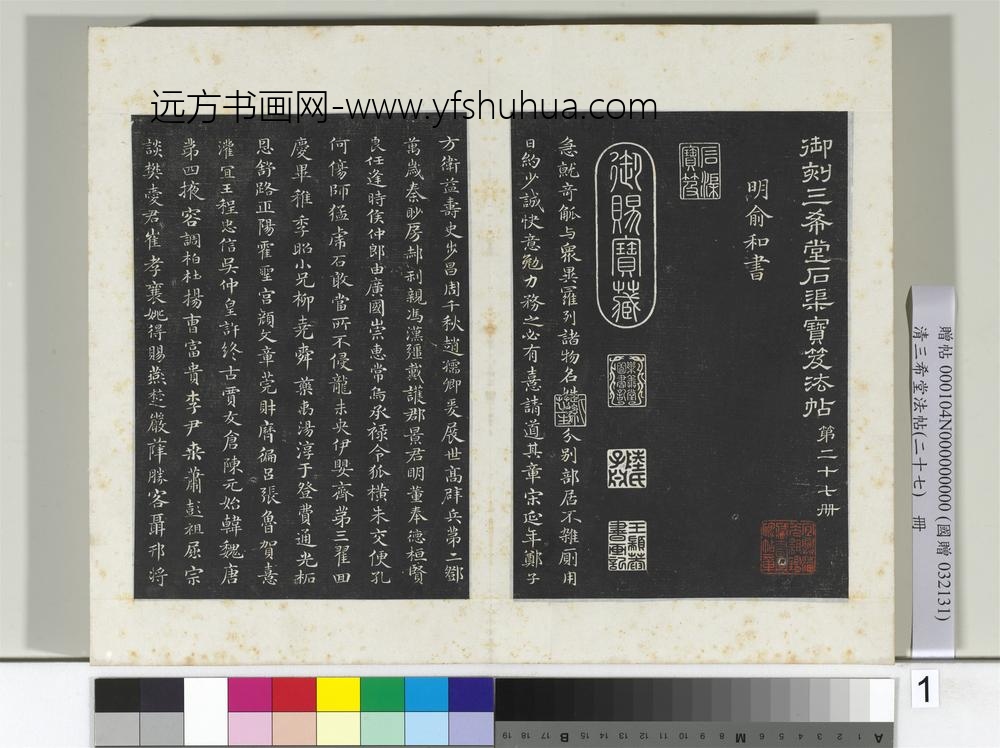 远方书画网-www.yfshuhua.com
御刻三希堂石渠寶笈法帖 第二十七冊
明俞和書
石渠寶笈
御賜寶藏
急就奇觚与衆異羅列諸物名姓字分別部居不雜厠用
日約少誠快意勉力務之必有憙請道其章宗延年鄭子
方衛益壽史步昌周千秋趙孺卿爰展世高辟兵第二鄧
萬歲秦眇房郝利親馮漢彊戴護郡景君明董奉德桓賢
良任逢時侯仲郎由廣國榮惠常烏承祿令狐橫朱交便孔
何傷師猛虎石敢當所不侵龍未央伊嬰齊第三翟回
慶畢稚季昭小兄柳堯舜藥禹湯淳于登費通光柘
恩舒路正陽霍聖宮顏文章莞財曆徧呂張魯賀憙
灌宜王程忠信吳仲皇許終古賈友倉陳元始韓魏唐
第四掖容調柏杜揚曹富貴李尹桑蕭彭祖屈宗
談樊愛君崔孝襄姚得賜燕楚嚴薛勝客聶邗將
贈帖 000104N000000000 (國贈 032131)
清三希堂法帖(二十七) 冊
1